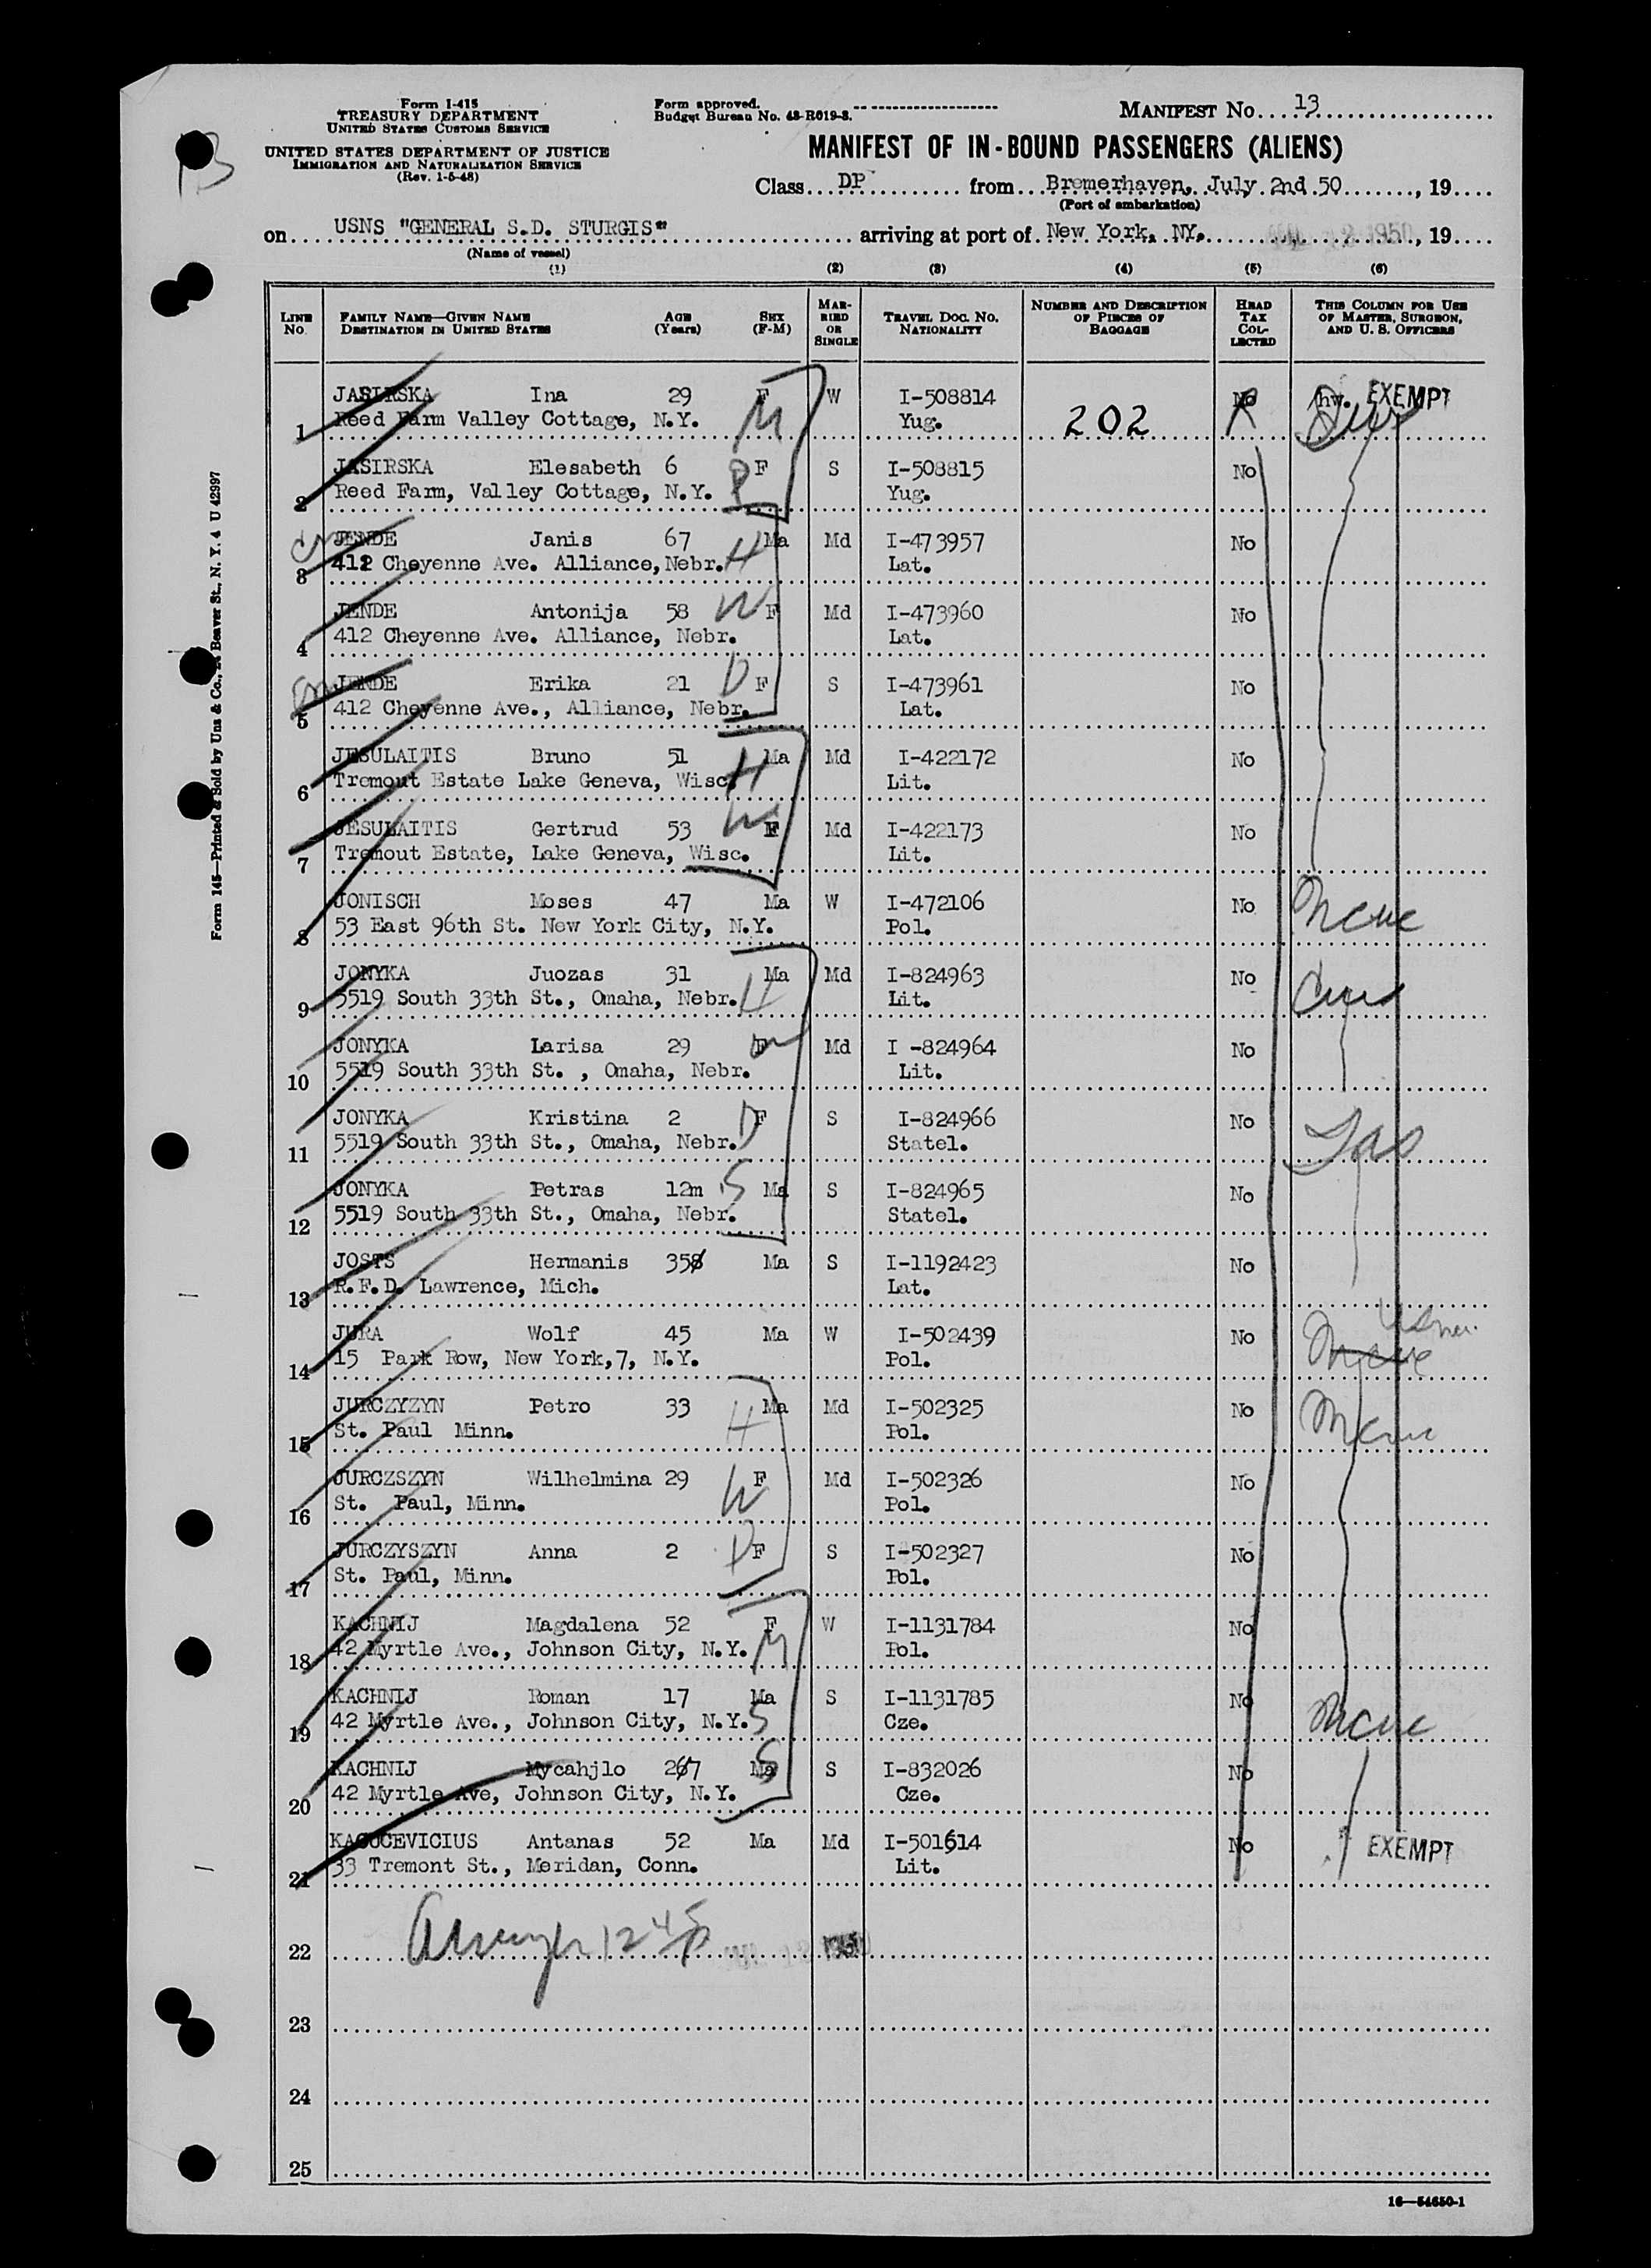 Form I-415
TREASURY DEPARTMENT
UNITED STATES CUSTOMS SERVICE
UNITED STATES DEPARTMENT OF JUSTICE
IMMIGRATION AND NATURALIZATION SERVICE
(Rev. 1-5-48)
Form approved.
Budget Bureau No. 43-R019-3.
MANIFEST No. 13
13
MANIFEST OF IN-BOUND PASSENGERS (ALIENS)
Class DP from Bremerhaven, July 2nd 50, 19
(Port of embarkation)
on USNS "GENERAL S.D. STURGIS" arriving at port of New York, NY. 1950, 19
(Name of vessel)
(1) (2) (3) (4) (5) (6)
LINE No. FAMILY NAME—GIVEN NAME DESTINATION IN UNITED STATES AGE (Years) SEX (F-M) MARRIED OR SINGLE TRAVEL DOC. NO. NATIONALITY NUMBER AND DESCRIPTION OF PIECES OF BAGGAGE HEAD TAX COLLECTED THIS COLUMN FOR USE OF MASTER, SURGEON, AND U. S. OFFICERS
JASIRSKA Ina 29 F W I-508814 No EXEMPT
1 Reed Farm Valley Cottage, N.Y. M Yug. 202
JASIRSKA Elesabeth 6 F S I-508815 No
2 Reed Farm, Valley Cottage, N.Y. Yug.
JENDE Janis 67 Ma Md I-473957 No
3 412 Cheyenne Ave. Alliance, Nebr. H Lat.
JENDE Antonija 58 W F Md I-473960 No
4 412 Cheyenne Ave. Alliance, Nebr. Lat.
JENDE Erika 21 D F S I-473961 No
5 412 Cheyenne Ave., Alliance, Nebr. Lat.
JESULAITIS Bruno 51 Ma Md I-422172 No
6 Tremout Estate Lake Geneva, Wisc. H Lit.
JESULAITIS Gertrud 53 W F Md I-422173 No
7 Tremout Estate, Lake Geneva, Wisc. Lit.
JONISCH Moses 47 Ma W I-472106 No
8 53 East 96th St. New York City, N.Y. Pol.
JONYKA Juozas 31 Ma Md I-824963 No
9 5519 South 33th St., Omaha, Nebr. H Lit.
JONYKA Larisa 29 F Md I -824964 No
10 5519 South 33th St. , Omaha, Nebr. Lit.
JONYKA Kristina 2 D F S I-824966 No
11 5519 South 33th St., Omaha, Nebr. Statel.
JONYKA Petras 12m S Ma S I-824965 No
12 5519 South 33th St., Omaha, Nebr. Statel.
JOSTS Hermanis 358 Ma S I-1192423 No
13 R.F.D. Lawrence, Mich. Lat.
JURA Wolf 45 Ma W I-502439 No
14 15 Park Row, New York,7, N.Y. Pol.
JURCZYZYN Petro 33 Ma Md I-502325 No
15 St. Paul Minn. H Pol.
JURCZSZYN Wilhelmina 29 F Md I-502326 No
16 St. Paul, Minn. W Pol.
JURCZYSZYN Anna 2 D F S I-502327 No
17 St. Paul, Minn. Pol.
KACHNIJ Magdalena 52 F W I-1131784 No
18 42 Myrtle Ave., Johnson City, N.Y. M Pol.
KACHNIJ Roman 17 Ma S I-1131785 No
19 42 Myrtle Ave., Johnson City, N.Y. S Cze.
KACHNIJ Mycahjlo 267 Ma S S I-832026 No
20 42 Myrtle Ave, Johnson City, N.Y. Cze.
KAGUCEVICIUS Antanas 52 Ma Md I-501614 No EXEMPT
21 33 Tremont St., Meridan, Conn. Lit.
22 12 45 p
23
24
25
16—54650-1
Form 145—Printed & Sold by Unz & Co., 24 Beaver St., N. Y. 4 U 42997